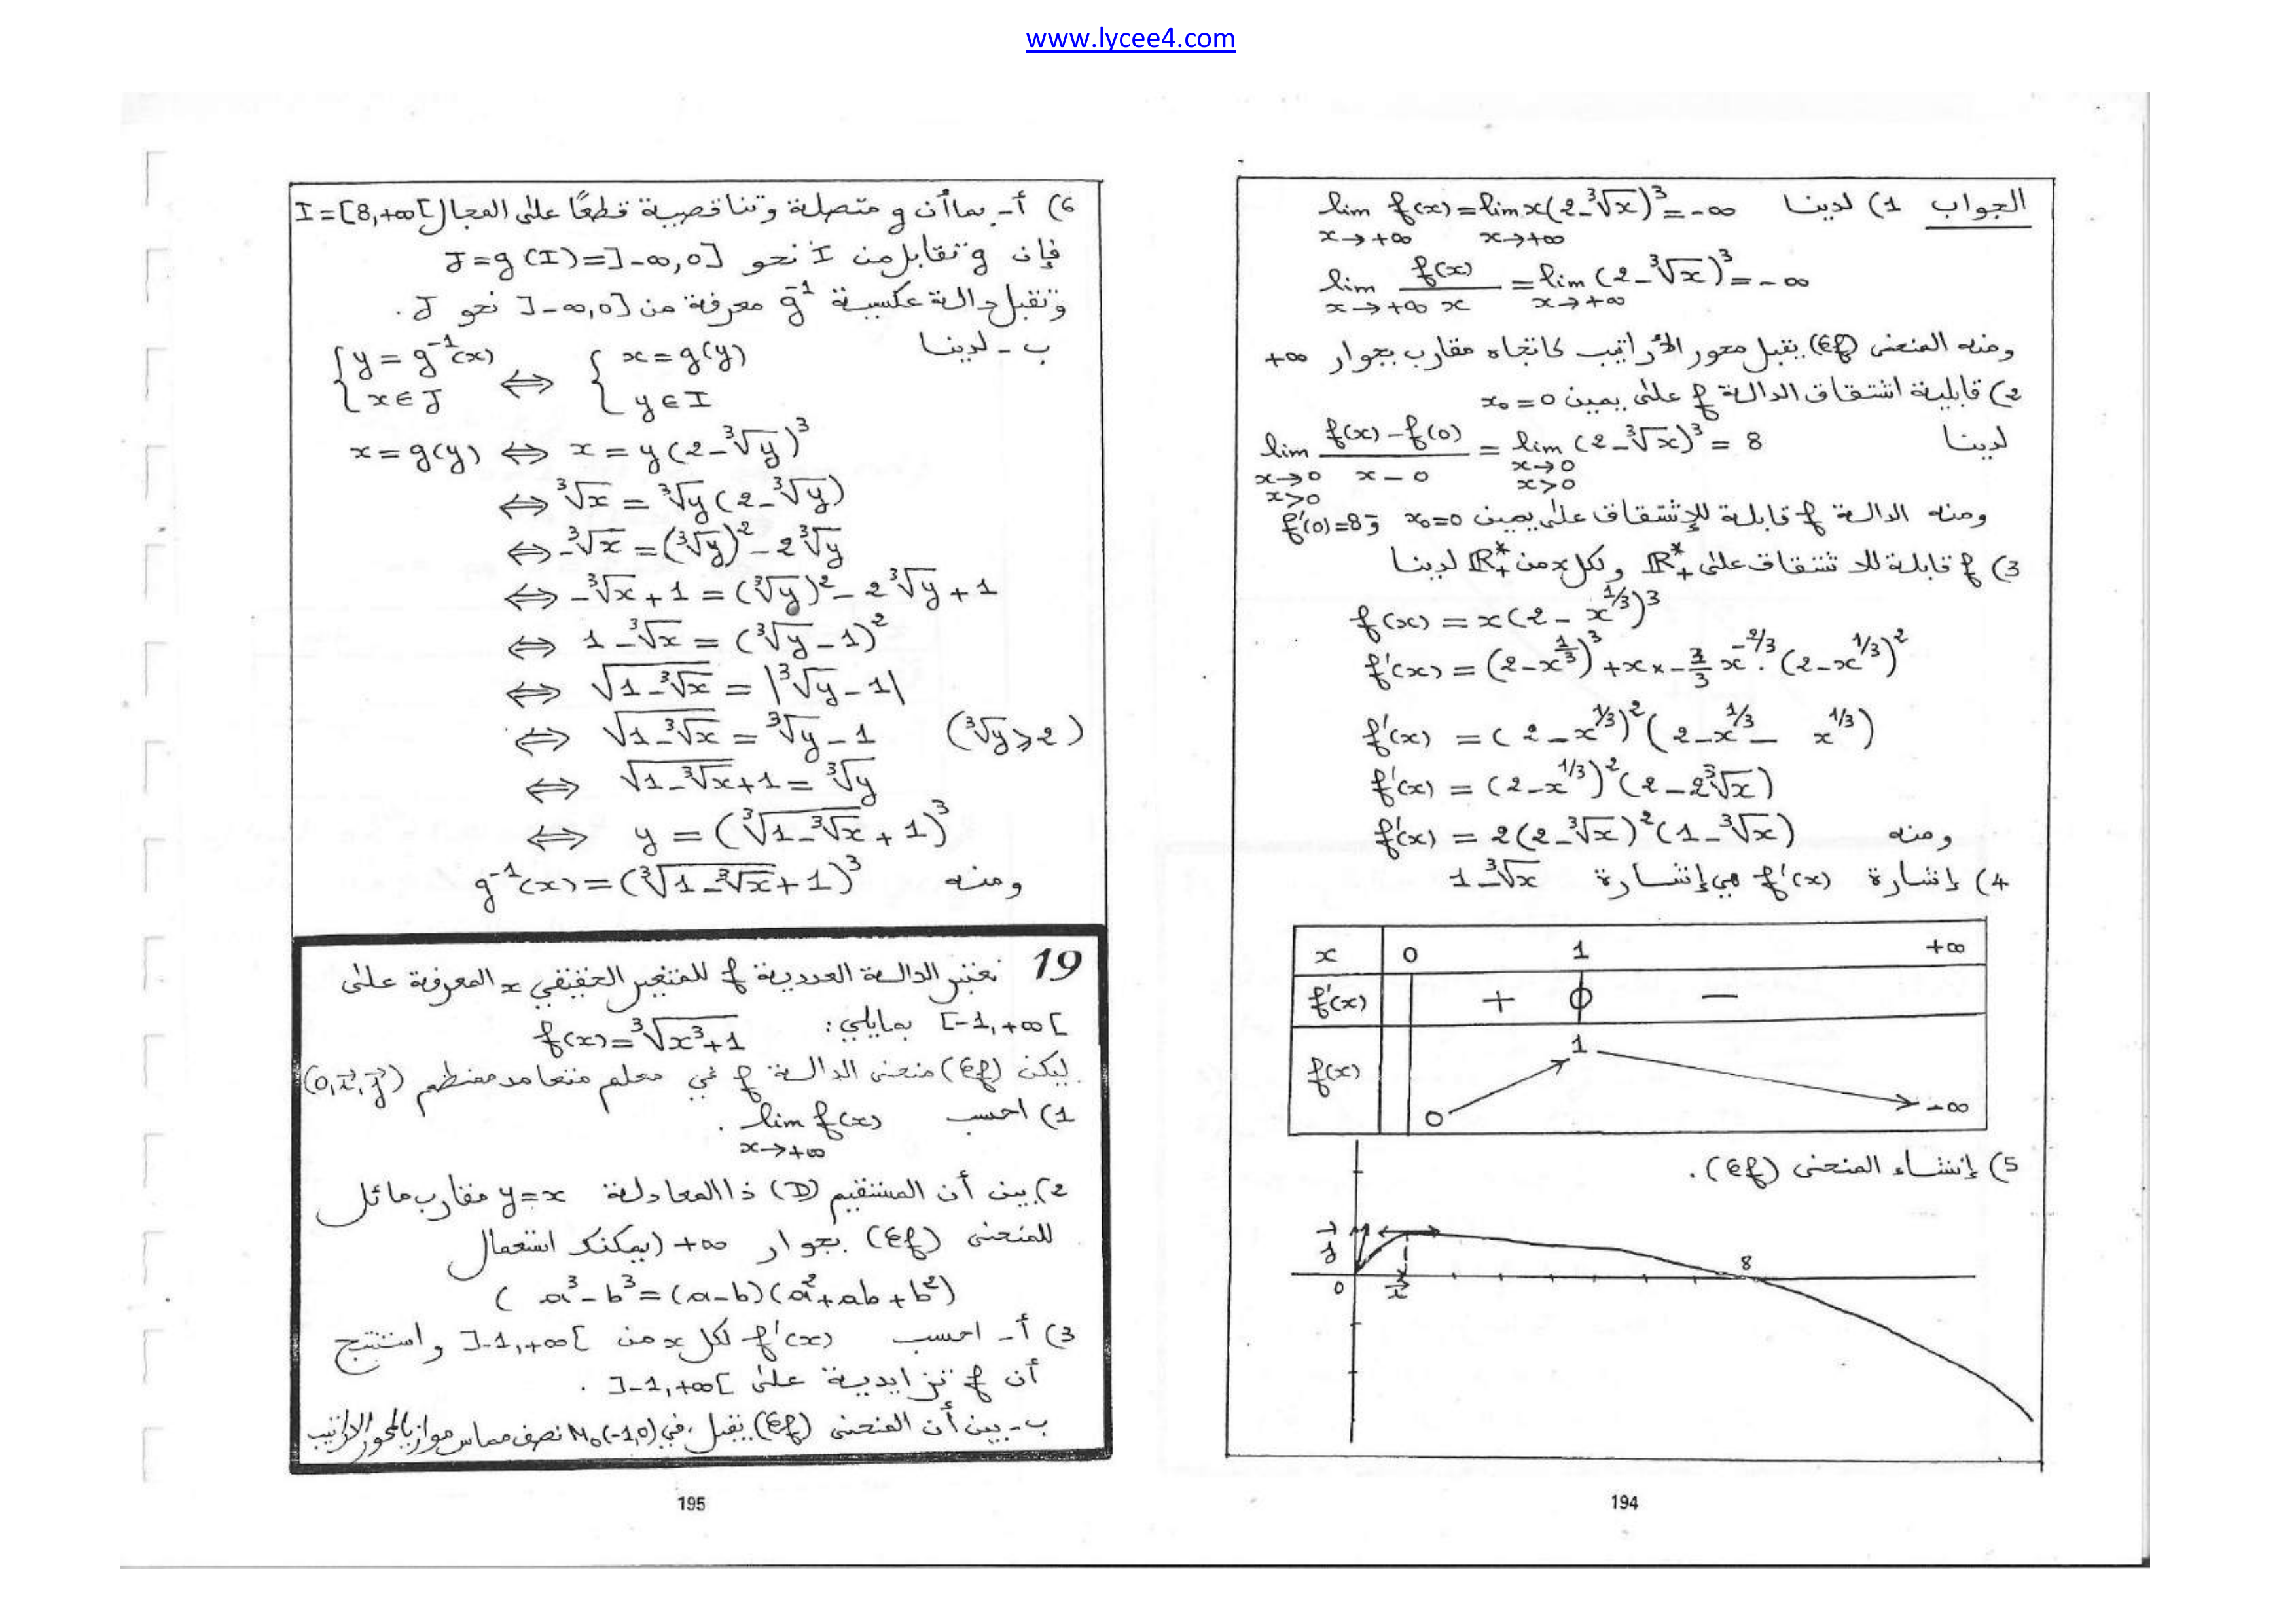 www.lycee4.com
الجواب 1) لدينا lim f(x) = lim x(2-∛x)³ = -∞
x→+∞ x→+∞
lim f(x)/x = lim (2-∛x)³ = -∞
x→+∞ x→+∞
ومنه المنحنى (Cf) يقبل محور الأراتيب كاتجاه مقارب بجوار +∞
2) قابلية اشتقاق الدالة f على يمين x₀=0
لدينا lim (f(x)-f(0))/(x-0) = lim (2-∛x)³ = 8
x→0 x→0
x>0 x>0
ومنه الدالة f قابلة للإشتقاق على يمين x₀=0 و f'(0)=8
3) f قابلة للاشتقاق على ℝ*₊ ولكل x من ℝ*₊ لدينا
f(x) = x(2 - x^(1/3))³
f'(x) = (2-x^(1/3))³ + x × -3/3 x^(-2/3) . (2-x^(1/3))²
f'(x) = (2-x^(1/3))² (2-x^(1/3) - x^(1/3))
f'(x) = (2-x^(1/3))² (2-2∛x)
ومنه f'(x) = 2(2-∛x)² (1-∛x)
4) إشارة f'(x) هي إشارة 1-∛x
x 0 1 +∞
f'(x) + 0 -
f(x) 0 1 -∞
5) إنشاء المنحنى (Cf).
j
8
0 i
194
6) أ- بما أن g متصلة وتناقصية قطعًا على المجال I=[8,+∞[
فإن g تقابل من I نحو J=g(I)=]-∞,0]
وتقبل دالة عكسية g⁻¹ معرفة من ]-∞,0] نحو J .
ب - لدينا
{ y = g⁻¹(x) ⇔ { x = g(y)
x ∈ J y ∈ I
x = g(y) ⇔ x = y(2-∛y)³
⇔ ∛x = ∛y(2-∛y)
⇔ -∛x = (∛y)² - 2∛y
⇔ -∛x + 1 = (∛y)² - 2∛y + 1
⇔ 1-∛x = (∛y - 1)²
⇔ √(1-∛x) = |∛y - 1|
⇔ √(1-∛x) = ∛y - 1 (∛y ⩾ 2)
⇔ √(1-∛x) + 1 = ∛y
⇔ y = (∛(1-∛x) + 1)³
ومنه g⁻¹(x) = (∛(1-∛x) + 1)³
19 نعتبر الدالة العددية f للمتغير الحقيقي x المعرفة على
[-1,+∞[ بمايلي:
f(x) = ∛(x³+1)
ليكن (Cf) منحنى الدالة f في معلم متعامد ممنظم (0,i,j)
1) احسب lim f(x) .
x→+∞
2) بين أن المستقيم (D) ذا المعادلة y=x مقارب مائل
للمنحنى (Cf) بجوار +∞ (يمكنك استعمال
a³-b³=(a-b)(a²+ab+b²) )
3) أ- احسب f'(x) لكل x من ]-1,+∞[ واستنتج
أن f تزايدية على ]-1,+∞[ .
ب- بين أن المنحنى (Cf) يقبل في M₀(-1,0) نصف مماس مواز بالمحور الاراتيب
195